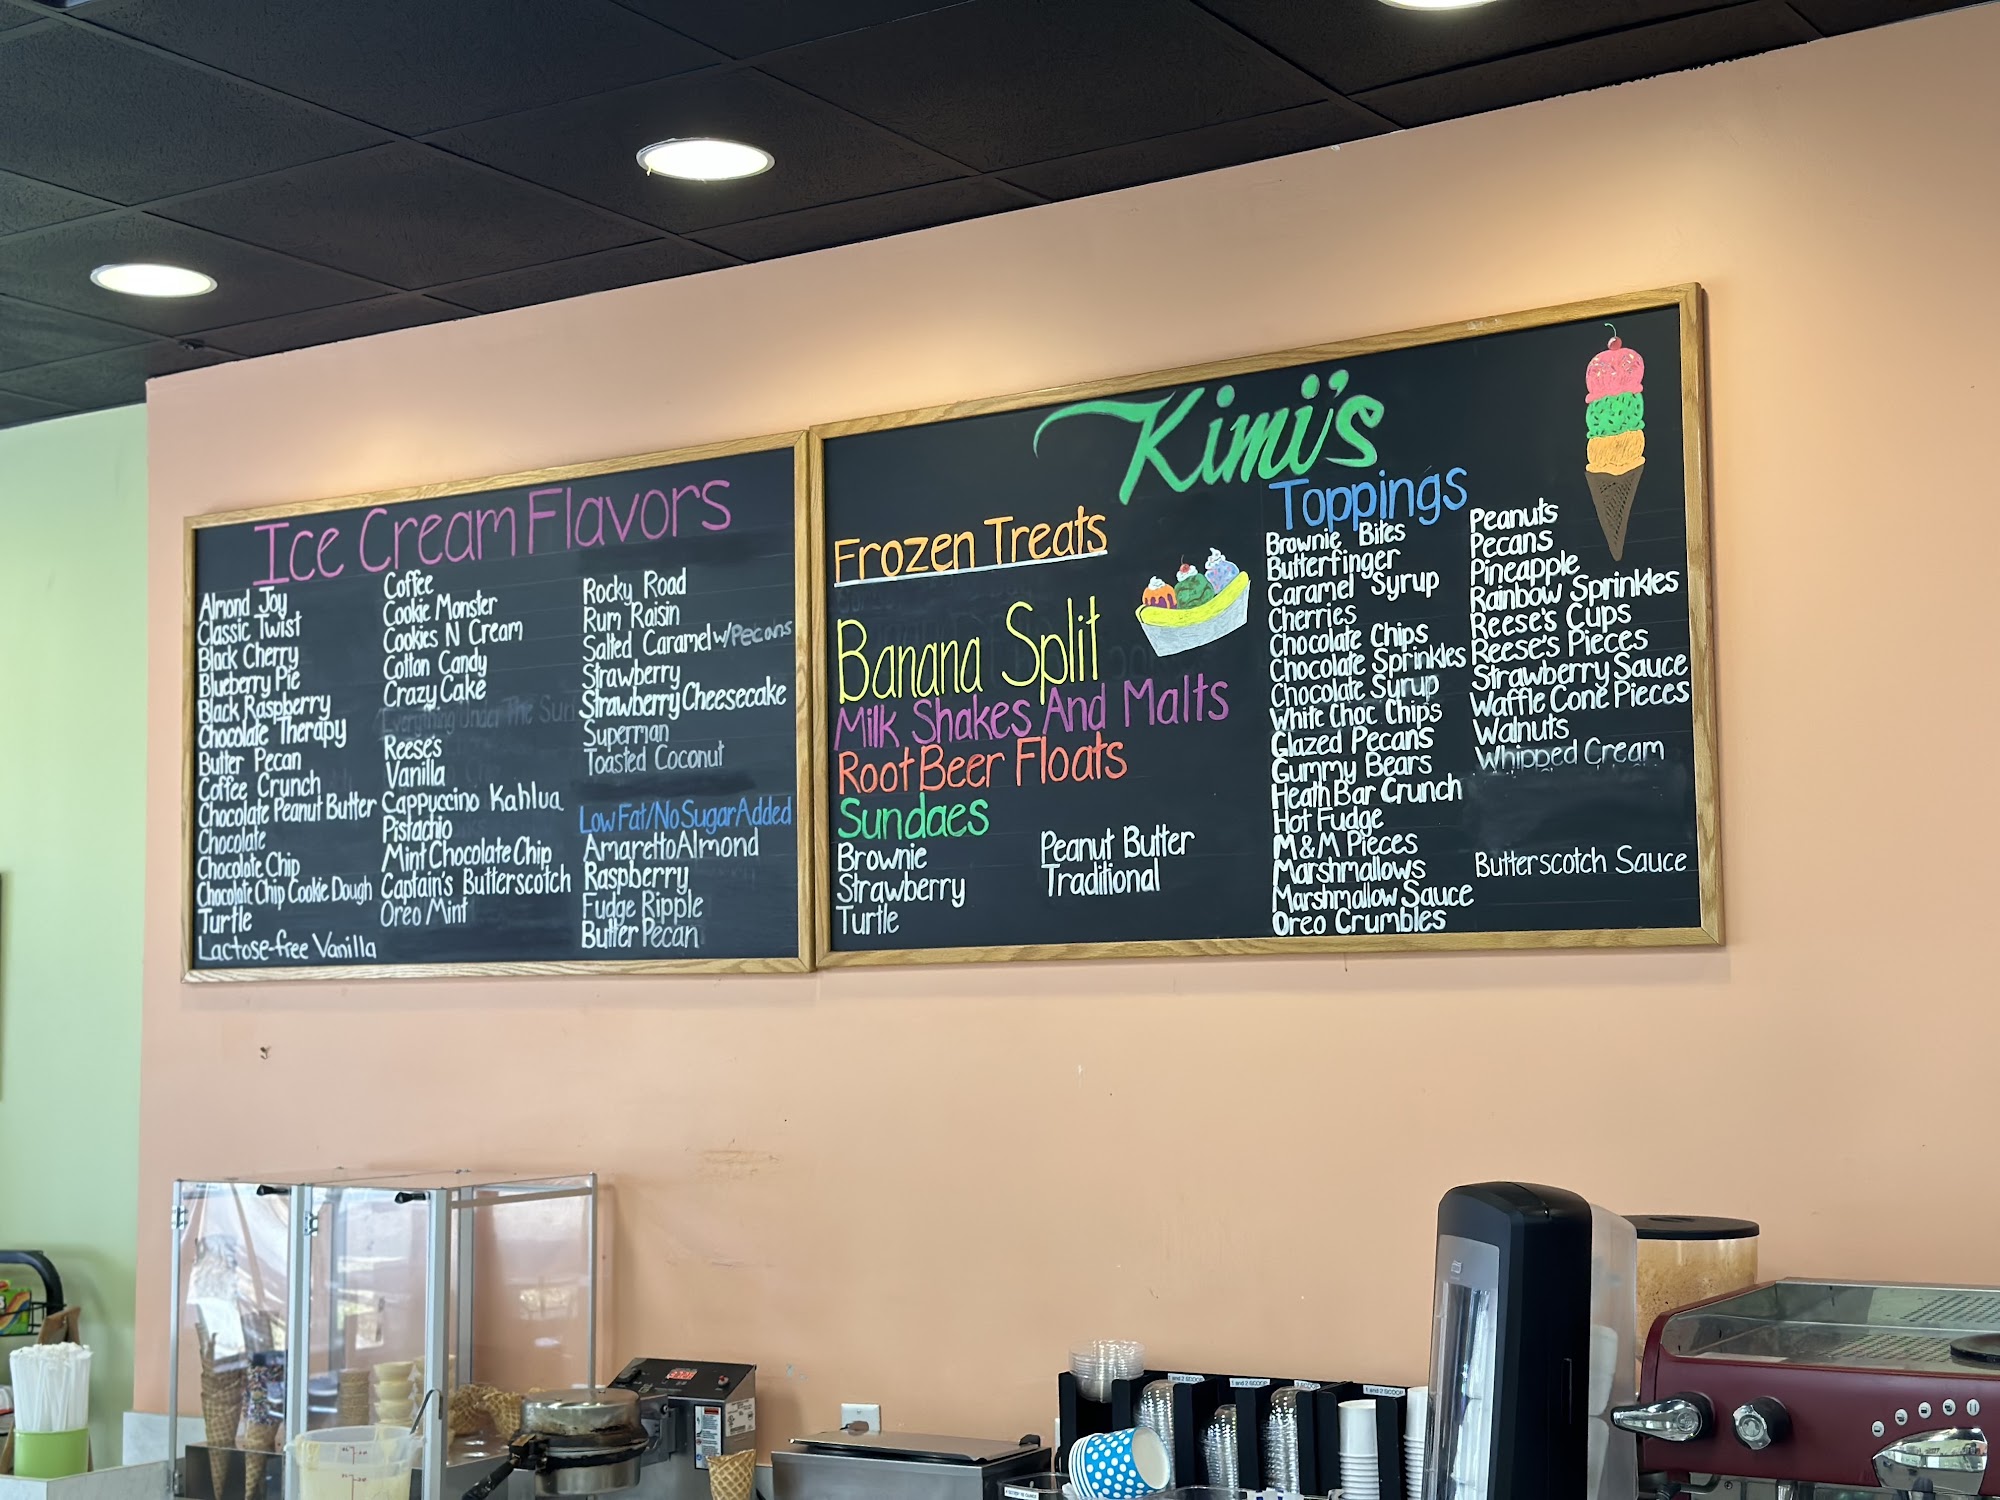 Ice Cream Flavors
Almond Joy
Classic Twist
Black Cherry
Blueberry Pie
Black Raspberry
Chocolate Therapy
Butter Pecan
Coffee Crunch
Chocolate Peanut Butter
Chocolate
Chocolate Chip
Chocolate Chip Cookie Dough
Turtle
Lactose-free Vanilla
Coffee
Cookie Monster
Cookies N Cream
Cotton Candy
Crazy Cake
Everything Under The Sun
Reese's
Vanilla
Cappuccino Kahlua
Pistachio
Mint Chocolate Chip
Captain's Butterscotch
Oreo Mint
Rocky Road
Rum Raisin
Salted Caramel w/Pecans
Strawberry
Strawberry Cheesecake
Superman
Toasted Coconut
Low Fat/No Sugar Added
Amaretto Almond
Raspberry
Fudge Ripple
Butter Pecan
Kimi's
Frozen Treats
Banana Split
Milk Shakes And Malts
Root Beer Floats
Sundaes
Brownie
Strawberry
Turtle
Peanut Butter
Traditional
Toppings
Brownie Bites
Butterfinger
Caramel Syrup
Cherries
Chocolate Chips
Chocolate Sprinkles
Chocolate Syrup
White Choc Chips
Glazed Pecans
Gummy Bears
Heath Bar Crunch
Hot Fudge
M&M Pieces
Marshmallows
Marshmallow Sauce
Oreo Crumbles
Peanuts
Pecans
Pineapple
Rainbow Sprinkles
Reese's Cups
Reese's Pieces
Strawberry Sauce
Waffle Cone Pieces
Walnuts
Whipped Cream
Butterscotch Sauce